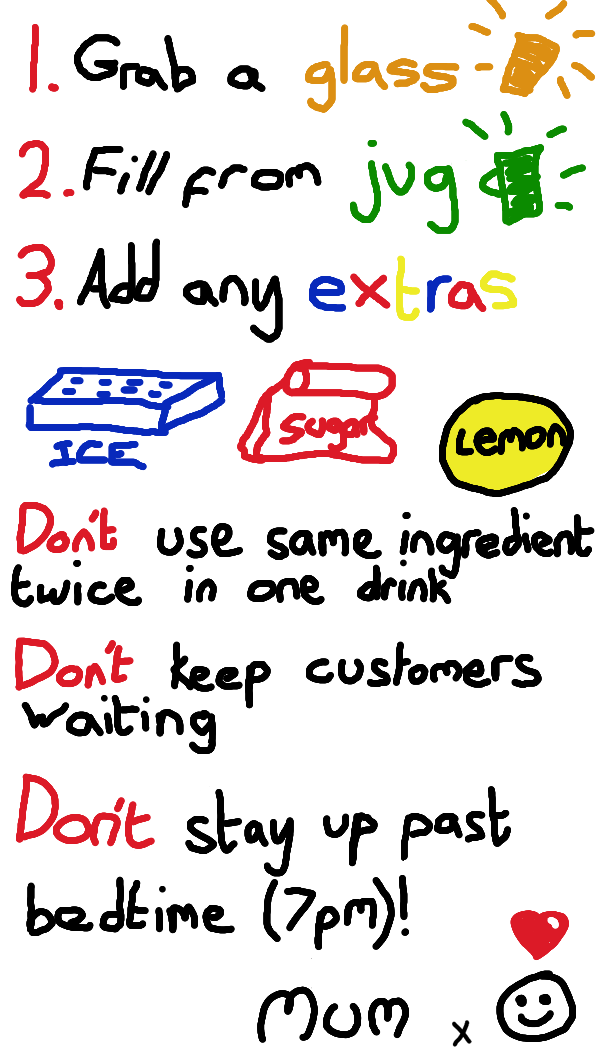 1. Grab a glass
2. Fill from jug
3. Add any extras
ICE
Sugar
Lemon
Don't use same ingredient
twice in one drink
Don't keep customers
waiting
Don't stay up past
bedtime (7pm)!
Mum x